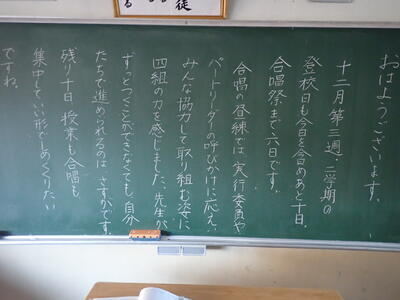 徒
る
おはようございます。
十二月第三週・二学期の
登校日も今日を含めあと十日。
合唱祭まで六日です。
合唱の昼練では、実行委員や
パートリーダーの呼びかけに応え、
みんな協力して取り組む姿に、
四組の力を感じました。先生が
ずっとつくことができなくても、自分
たちで進められるのは、さすがです。
残り十日、授業も合唱も
集中していい形でしめくくりたい
ですね。